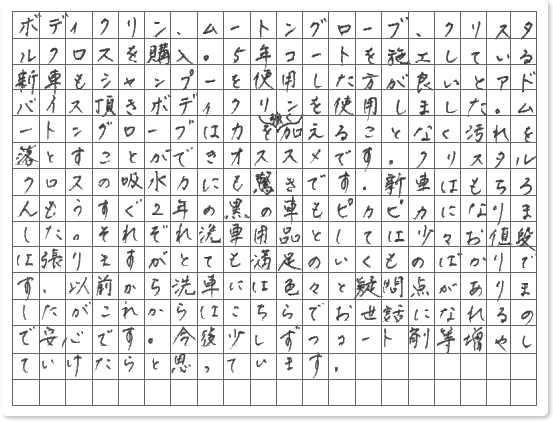 ボディクリン、ムートングローブ、クリスタ
ルクロスを購入。5年コートを施工している
新車もシャンプーを使用した方が良いとアド
バイス頂きボディクリンを使用しました。ム
ートングローブは力を強く加えることなく汚れを
落とすことができオススメです。クリスタル
クロスの吸水力にも驚きです。新車はもちろ
んもうすぐ2年の黒の車もピカピカになりま
した。それぞれ洗車用品としては少々お値段
は張りますがとても満足のいくものばかりで
す。以前から洗車には色々と疑問点がありま
したがこれからはこちらでお世話になれるの
で安心です。今後少しずつコート剤等増やし
ていけたらと思っています。